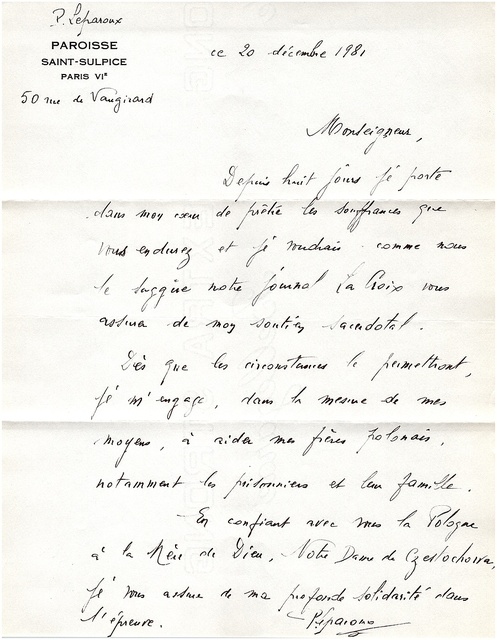 P. Leparoux
PAROISSE
SAINT-SULPICE
PARIS VIe
50 rue de Vaugirard
ce 20 décembre 1981
Monseigneur,
Depuis huit jours je porte
dans mon cœur de prêtre les souffrances que
vous endurez et je voudrais comme nous
le suggère notre journal La Croix vous
assurer de mon soutien sacerdotal.
Dès que les circonstances le permettront,
je m'engage, dans la mesure de mes
moyens, à aider mes frères polonais,
notamment les prisonniers et leur famille.
En confiant avec vous la Pologne
à la Mère de Dieu, Notre Dame de Czestochowa,
je vous assure de ma profonde solidarité dans
l'épreuve.
P. Leparoux